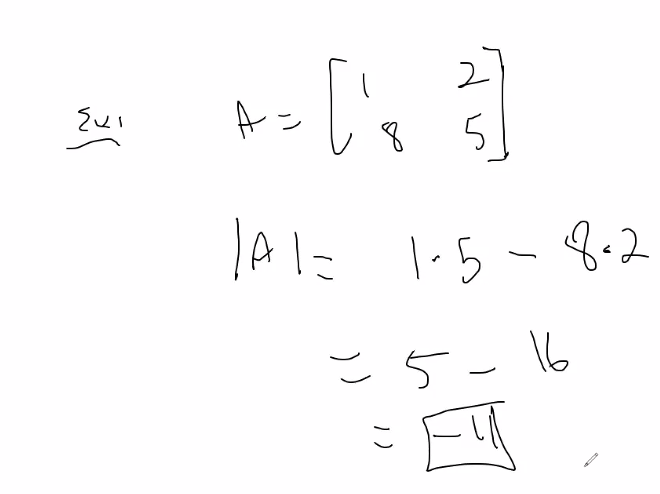 Ex1 A = [1 2
8 5]
|A| = 1·5 - 8·2
= 5 - 16
= -11